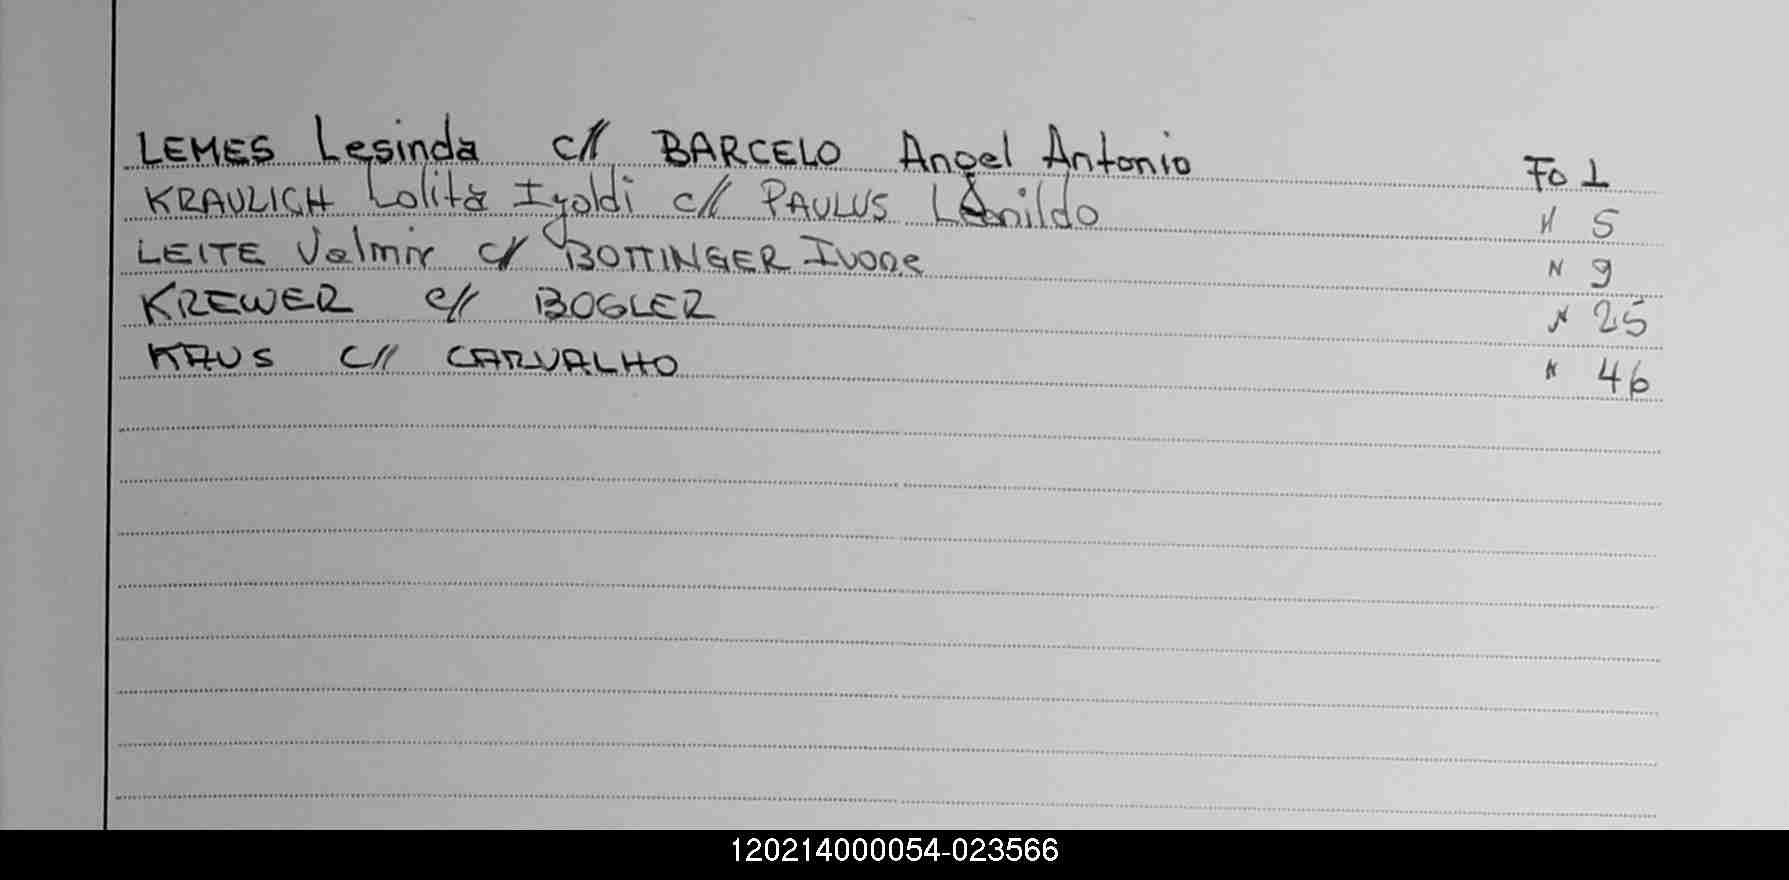 LEMES Lesinda c// BARCELO Angel Antonio Fo 1
KRAULICH Lolita Iyoldi c// PAULUS Leonildo " 5
LEITE Valmir c// BOTTINGER Ivone " 9
KREWER c// BOGLER " 25
KAUS c// CARVALHO " 46
120214000054-023566